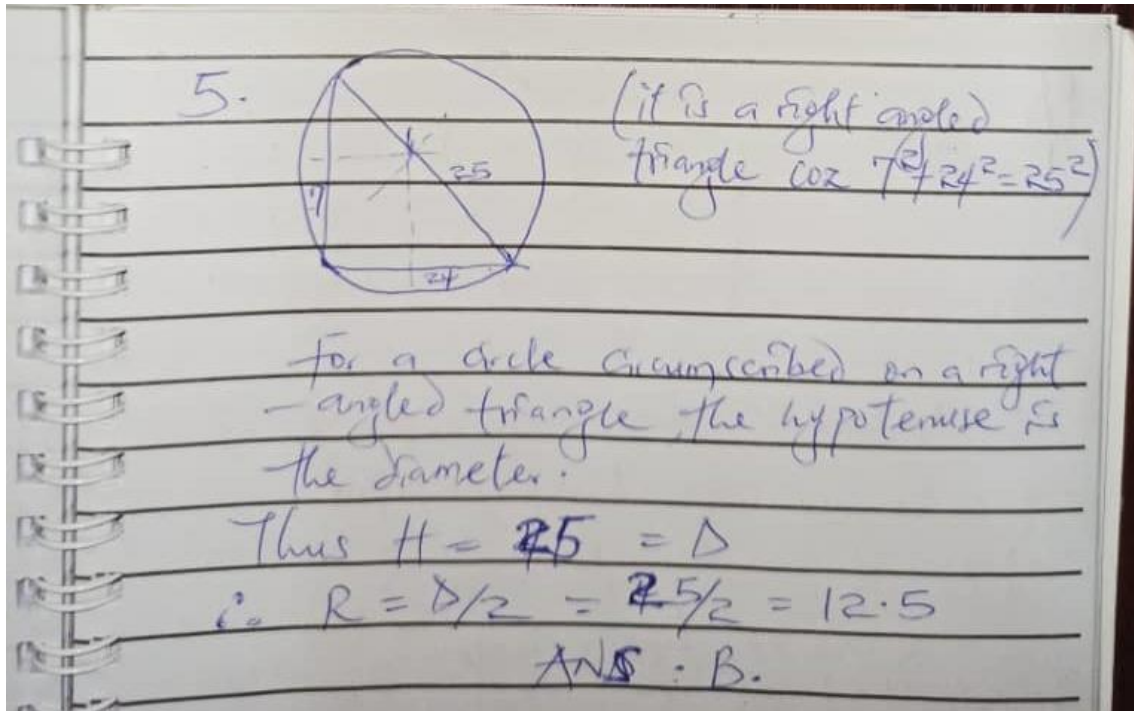 5.
7
25
24
(it is a right angled
triangle coz 7²+24²=25²)
For a circle circumscribed on a right
-angled triangle the hypotenuse is
the diameter.
Thus H = 25 = D
∴ R = D/2 = 25/2 = 12.5
ANS : B.